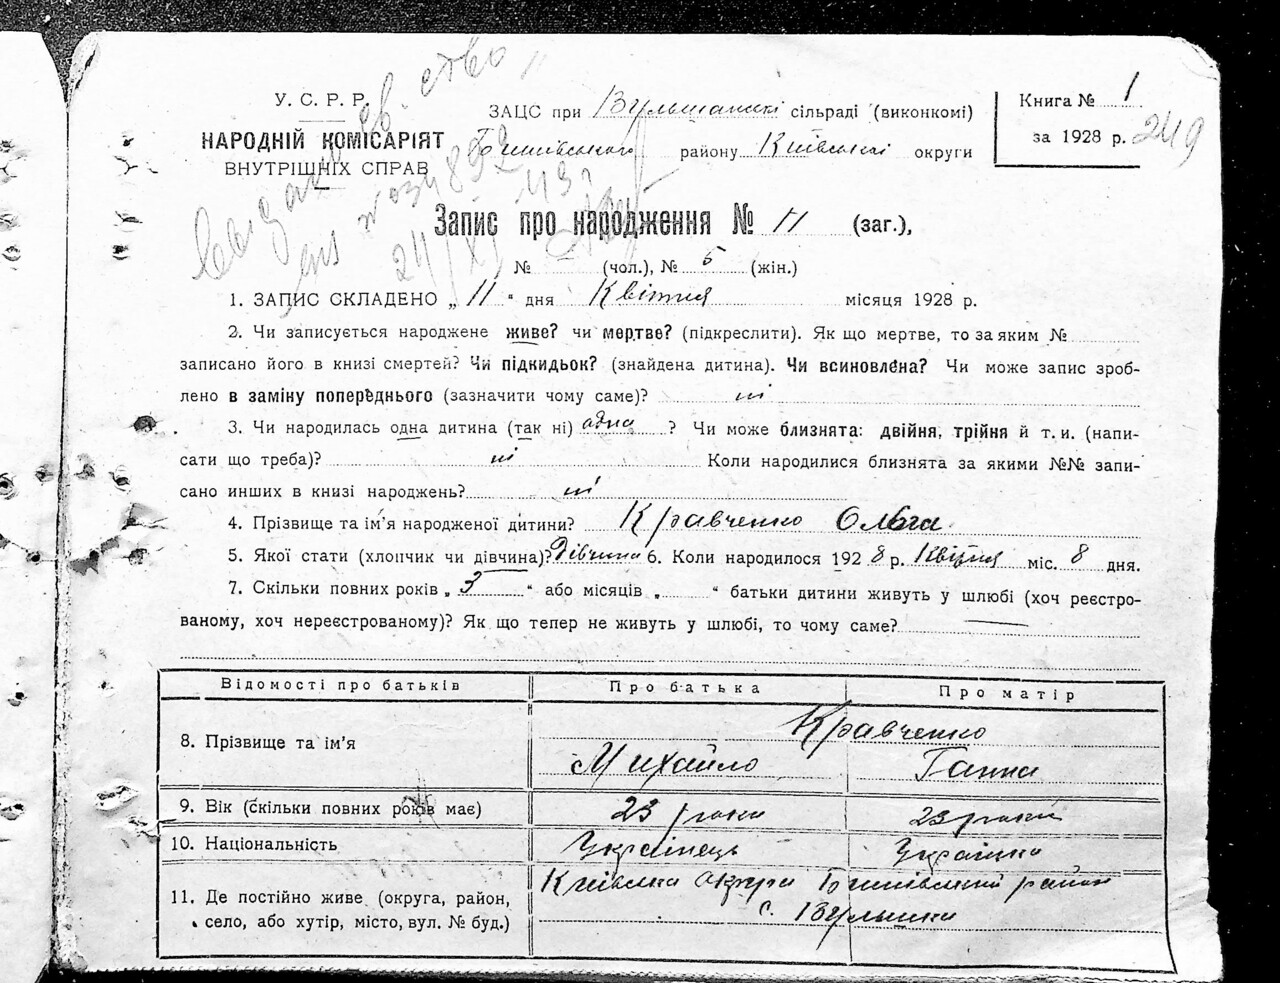 У. С. Р. Р.
НАРОДНІЙ КОМІСАРІЯТ
ВНУТРІШНІХ СПРАВ
ЗАЦС при сільраді (виконкомі)
району Київської округи
Книга № 1
за 1928 р. 249
Запис про народження № 11 (заг.),
№ (чол.), № 5 (жін.)
1. ЗАПИС СКЛАДЕНО „ 11 “ дня Квітня місяця 1928 р.
2. Чи записується народжене живе? чи мертве? (підкреслити). Як що мертве, то за яким №
записано його в книзі смертей? Чи підкидьок? (знайдена дитина). Чи всиновлена? Чи може запис зроб-
лено в заміну попереднього (зазначити чому саме)? ні
3. Чи народилась одна дитина (так ні) одна ? Чи може близнята: двійня, трійня й т. и. (напи-
сати що треба)? ні Коли народилися близнята за якими №№ запи-
сано инших в книзі народжень? ні
4. Прізвище та ім’я народженої дитини? Кравченко Ольга
5. Якої стати (хлопчик чи дівчина)? Дівчина 6. Коли народилося 192 8 р. Квітня міс. 8 дня.
7. Скільки повних років „ 3 “ або місяців „ “ батьки дитини живуть у шлюбі (хоч реєстро-
ваному, хоч нереєстрованому)? Як що тепер не живуть у шлюбі, то чому саме? —
Відомості про батьків Про батька Про матір
8. Прізвище та ім’я Кравченко
Михайло Ганна
9. Вік (скільки повних років має) 23 роки 23 роки
10. Національність Українець Українка
11. Де постійно живе (округа, район,
село, або хутір, місто, вул. № буд.)
Київська округа район
с.